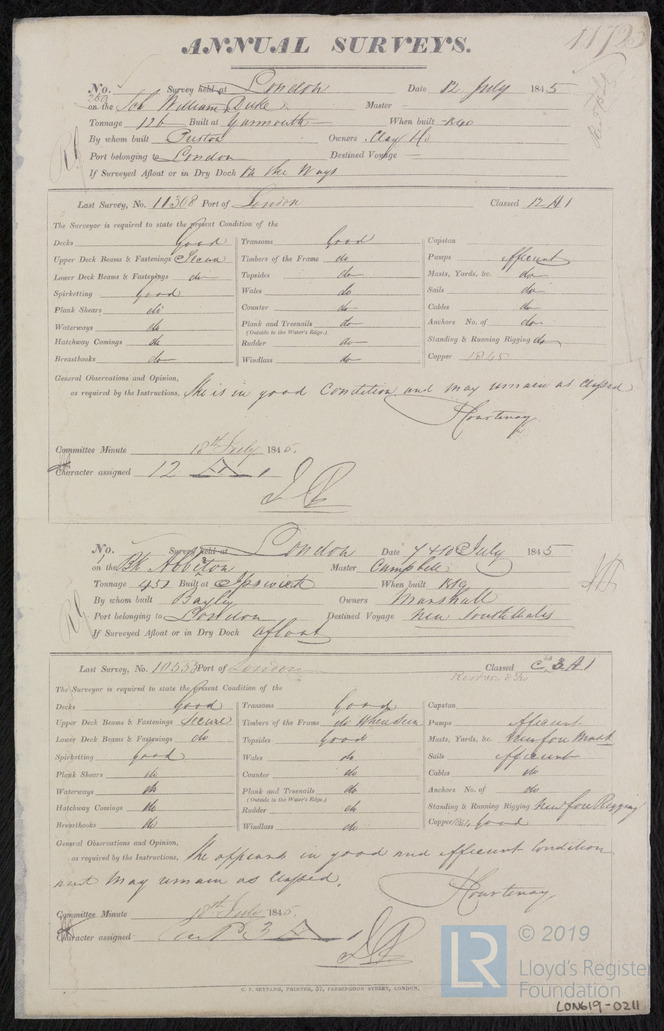 ANNUAL SURVEYS. 11723
No. Survey held at London Date 12 July 1845
on the Sch William Duke Master
Tonnage 126 Built at Yarmouth When built 1840
By whom built Preston Owners Clay & Co
Port belonging to London Destined Voyage
If Surveyed Afloat or in Dry Dock On the Ways
Last Survey, No. 11308 Port of London Classed 12 A 1
The Surveyor is required to state the present Condition of the
Decks Good Transoms Good Capstan
Upper Deck Beams & Fastenings Secure Timbers of the Frame do Pumps efficient
Lower Deck Beams & Fastenings do Topsides do Masts, Yards, &c. do
Spirketting good Wales do Sails do
Plank Shears do Counter do Cables do
Waterways do Plank and Treenails do Anchors No. of do
(Outside to the Water's Edge.)
Hatchway Comings do Rudder do Standing & Running Rigging do
Breasthooks do Windlass do Copper 1845
General Observations and Opinion,
as required by the Instructions, She is in good Condition and may remain as Classed
Courtenay
Committee Minute 18th July 1845.
Character assigned 12 A 1
No. Survey held at London Date 7 & 10 July 1845
on the Bk Abbeton Master Campbell
Tonnage 451 Built at Ipswich When built
By whom built Bayley Owners Marshall
Port belonging to London Destined Voyage New South Wales
If Surveyed Afloat or in Dry Dock Afloat
Last Survey, No. 10553 Port of London Classed 3 A 1
The Surveyor is required to state the present Condition of the
Decks Good Transoms Good Capstan
Upper Deck Beams & Fastenings Secure Timbers of the Frame do When seen Pumps efficient
Lower Deck Beams & Fastenings do Topsides Good Masts, Yards, &c. New fore Mast
Spirketting good Wales do Sails efficient
Plank Shears do Counter do Cables do
Waterways do Plank and Treenails do Anchors No. of do
(Outside to the Water's Edge.)
Hatchway Comings do Rudder do Standing & Running Rigging New fore Rigging
Breasthooks do Windlass do Copper Good
General Observations and Opinion,
as required by the Instructions, She appears in good and efficient Condition
and may remain as Classed.
Courtenay
Committee Minute 18th July 1845.
Character assigned 3 A 1
C. F. SEYFANG, PRINTER, 57, FARRINGDON STREET, LONDON.
LR © 2019
Lloyd's Register
Foundation
LON619-0211